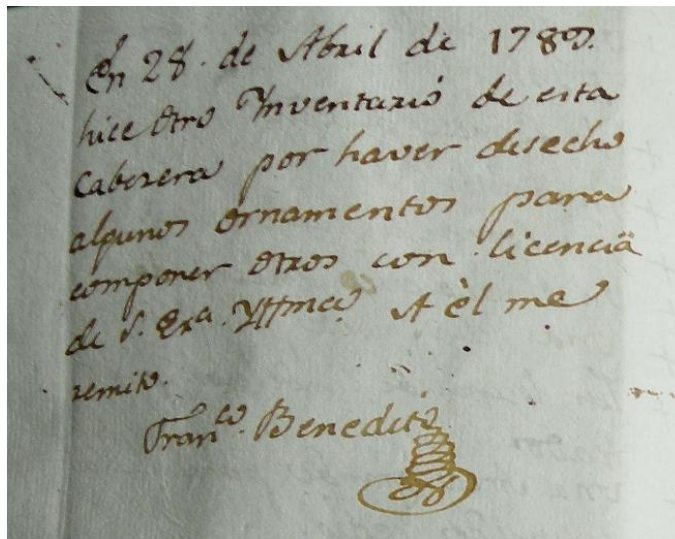 En 28. de Abril de 1789.
hice otro Ynventario de esta
Cabezera por haver desecho
algunos ornamentos para
componer otros con licencia
de S. Exa. Yllma. A èl me
remito.
Franco. Benedito